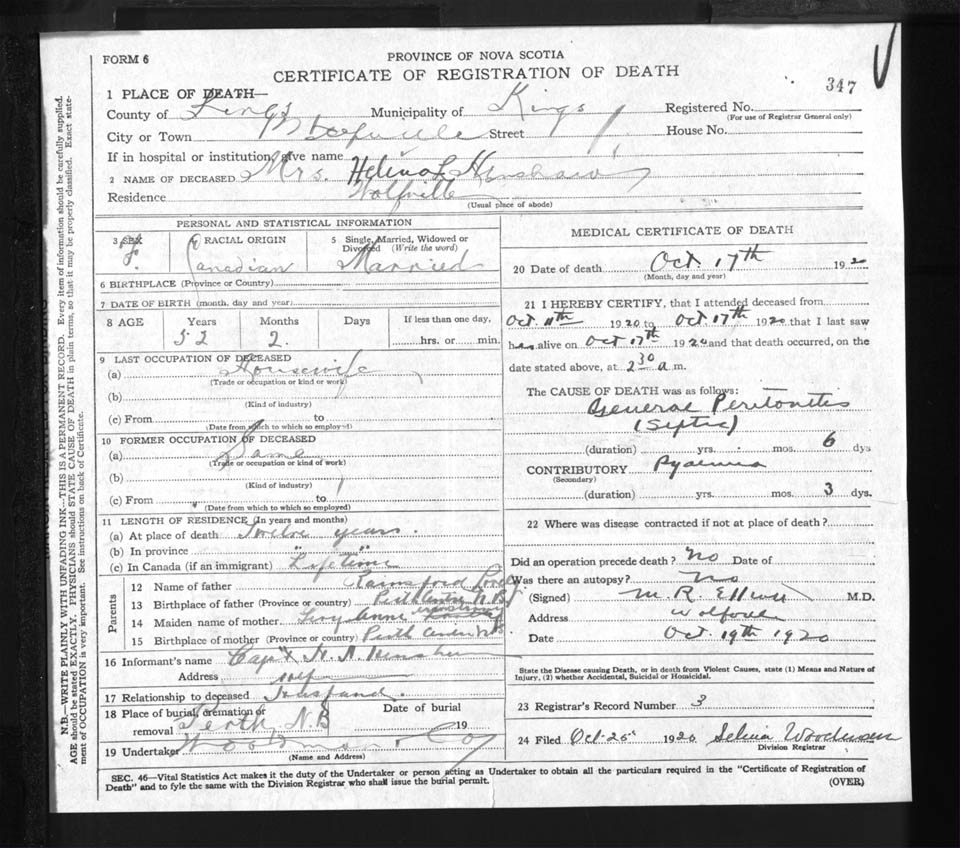 FORM 6
PROVINCE OF NOVA SCOTIA
CERTIFICATE OF REGISTRATION OF DEATH
347
1 PLACE OF DEATH—
County of Kings Municipality of Kings Registered No.
(For use of Registrar General only)
City or Town Wolfville Street House No.
If in hospital or institution, give name
2 NAME OF DECEASED Mrs. Helena L Henshaw
Residence Wolfville
(Usual place of abode)
PERSONAL AND STATISTICAL INFORMATION
3 SEX 4 RACIAL ORIGIN 5 Single, Married, Widowed or Divorced (Write the word)
F. Canadian Married
6 BIRTHPLACE (Province or Country)
7 DATE OF BIRTH (month, day and year)
8 AGE Years Months Days If less than one day,
52 2. hrs. or min.
9 LAST OCCUPATION OF DECEASED
(a) Housewife
(Trade or occupation or kind or work)
(b)
(Kind of industry)
(c) From to
(Date from which to which so employed)
10 FORMER OCCUPATION OF DECEASED
(a) Same
(Trade or occupation or kind of work)
(b)
(Kind of industry)
(c) From to
(Date from which to which so employed)
11 LENGTH OF RESIDENCE (In years and months)
(a) At place of death Twelve years.
(b) In province " "
(c) In Canada (if an immigrant) Lifetime
Parents
12 Name of father Rainsford
13 Birthplace of father (Province or country) Perth Centre N.B.
14 Maiden name of mother Anne
15 Birthplace of mother (Province or country) Perth Centre N.B
16 Informant's name Capt
Address
17 Relationship to deceased Husband.
18 Place of burial, cremation or removal Perth N.B Date of burial 19
19 Undertaker Woodman & Co
(Name and Address)
MEDICAL CERTIFICATE OF DEATH
20 Date of death Oct. 17th 1920
(Month, day and year)
21 I HEREBY CERTIFY, that I attended deceased from
Oct. 11th 1920 to Oct. 17th 1920 that I last saw
her alive on Oct 17th 1920 and that death occurred, on the
date stated above, at 2 30 a m.
The CAUSE OF DEATH was as follows:
General Peritonitis
(Septic)
(duration) yrs. mos. 6 dys
CONTRIBUTORY Pyaemia
(Secondary)
(duration) yrs. mos. 3 dys.
22 Where was disease contracted if not at place of death?
Did an operation precede death? No Date of
Was there an autopsy? No
(Signed) M. R. Elliott M.D.
Address Wolfville
Date Oct. 19th 1920
State the Disease causing Death, or in death from Violent Causes, state (1) Means and Nature of
Injury, (2) whether Accidental, Suicidal or Homicidal.
23 Registrar's Record Number 3
24 Filed Oct-25 1920 Selina Woodman
Division Registrar
SEC. 46—Vital Statistics Act makes it the duty of the Undertaker or person acting as Undertaker to obtain all the particulars required in the "Certificate of Registration of
Death" and to fyle the same with the Division Registrar who shall issue the burial permit.
(OVER)
N.B.—WRITE PLAINLY WITH UNFADING INK—THIS IS A PERMANENT RECORD. Every item of information should be carefully supplied.
AGE should be stated EXACTLY. PHYSICIANS should STATE CAUSE OF DEATH in plain terms, so that it may be properly classified. Exact state-
ment of OCCUPATION is very important. See instructions on back of Certificate.